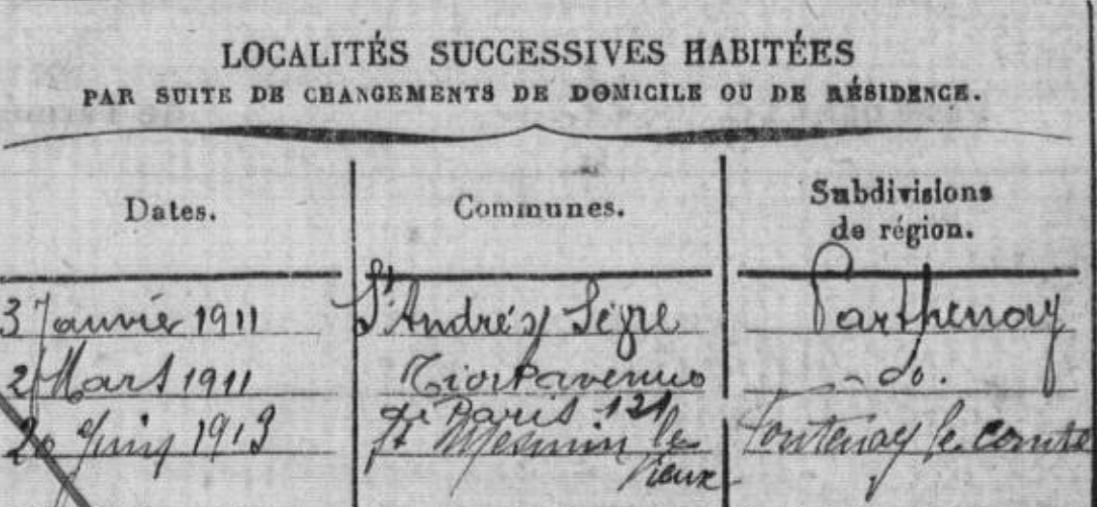 LOCALITÉS SUCCESSIVES HABITÉES
PAR SUITE DE CHANGEMENTS DE DOMICILE OU DE RÉSIDENCE.
Dates. Communes. Subdivisions
de région.
3 Janvier 1911 St André s/ Sèvre Parthenay
2 Mars 1911 Niort avenue - do.
de Paris 121
20 Juin 1913 St Mesmin le Fontenay le comte
Vieux